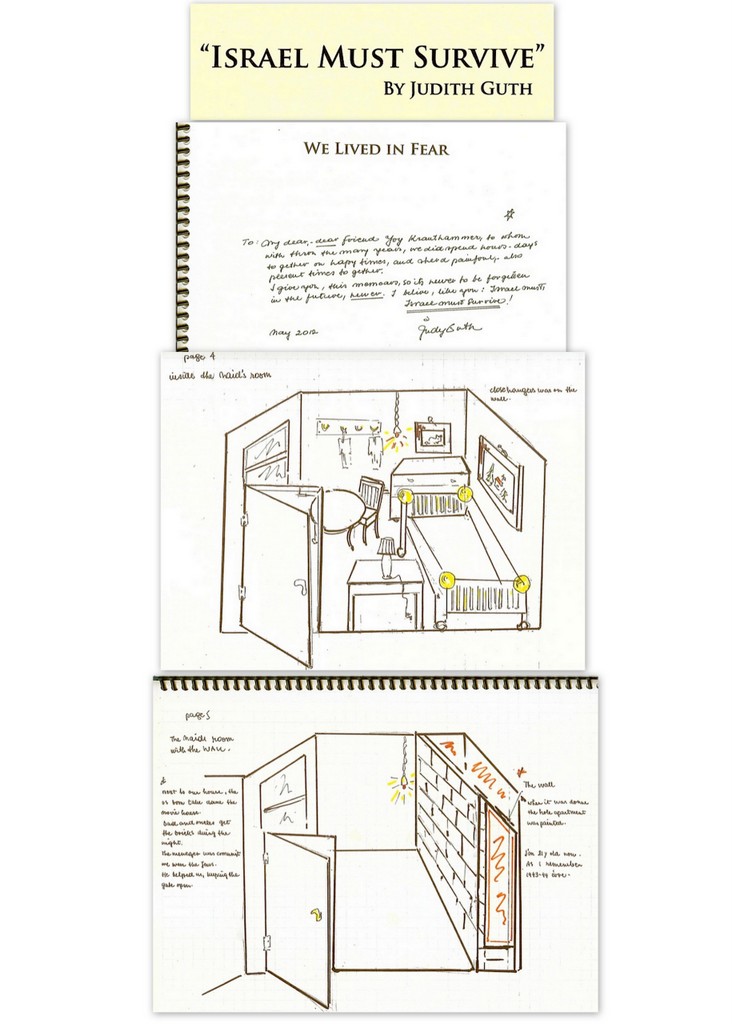 "ISRAEL MUST SURVIVE"
BY JUDITH GUTH
WE LIVED IN FEAR
To: My dear, dear friend Joy Krauthammer, to whom
with thron the many years, we did spend hours-days
to gether on hapy times, and shed painfully also
present times to gether.
I give you, this memoars, so its never to be forgoten
in the future, never. I belive, like you: Israel must,
Israel must Survive!
May 2012
Judy Guth
page 4
inside the maid's room
closehangers was on the
wall.
page 5
The maids room
with the WALL.
next to our house, the
bom take down the
movie house.
Dad and get
the bricks during the
night.
The meneger was comunist
we were the Jews.
He helped us, the
gate open.
The wall
when it was done
the hole apartment
was painted.
I'm old now.
As I remember